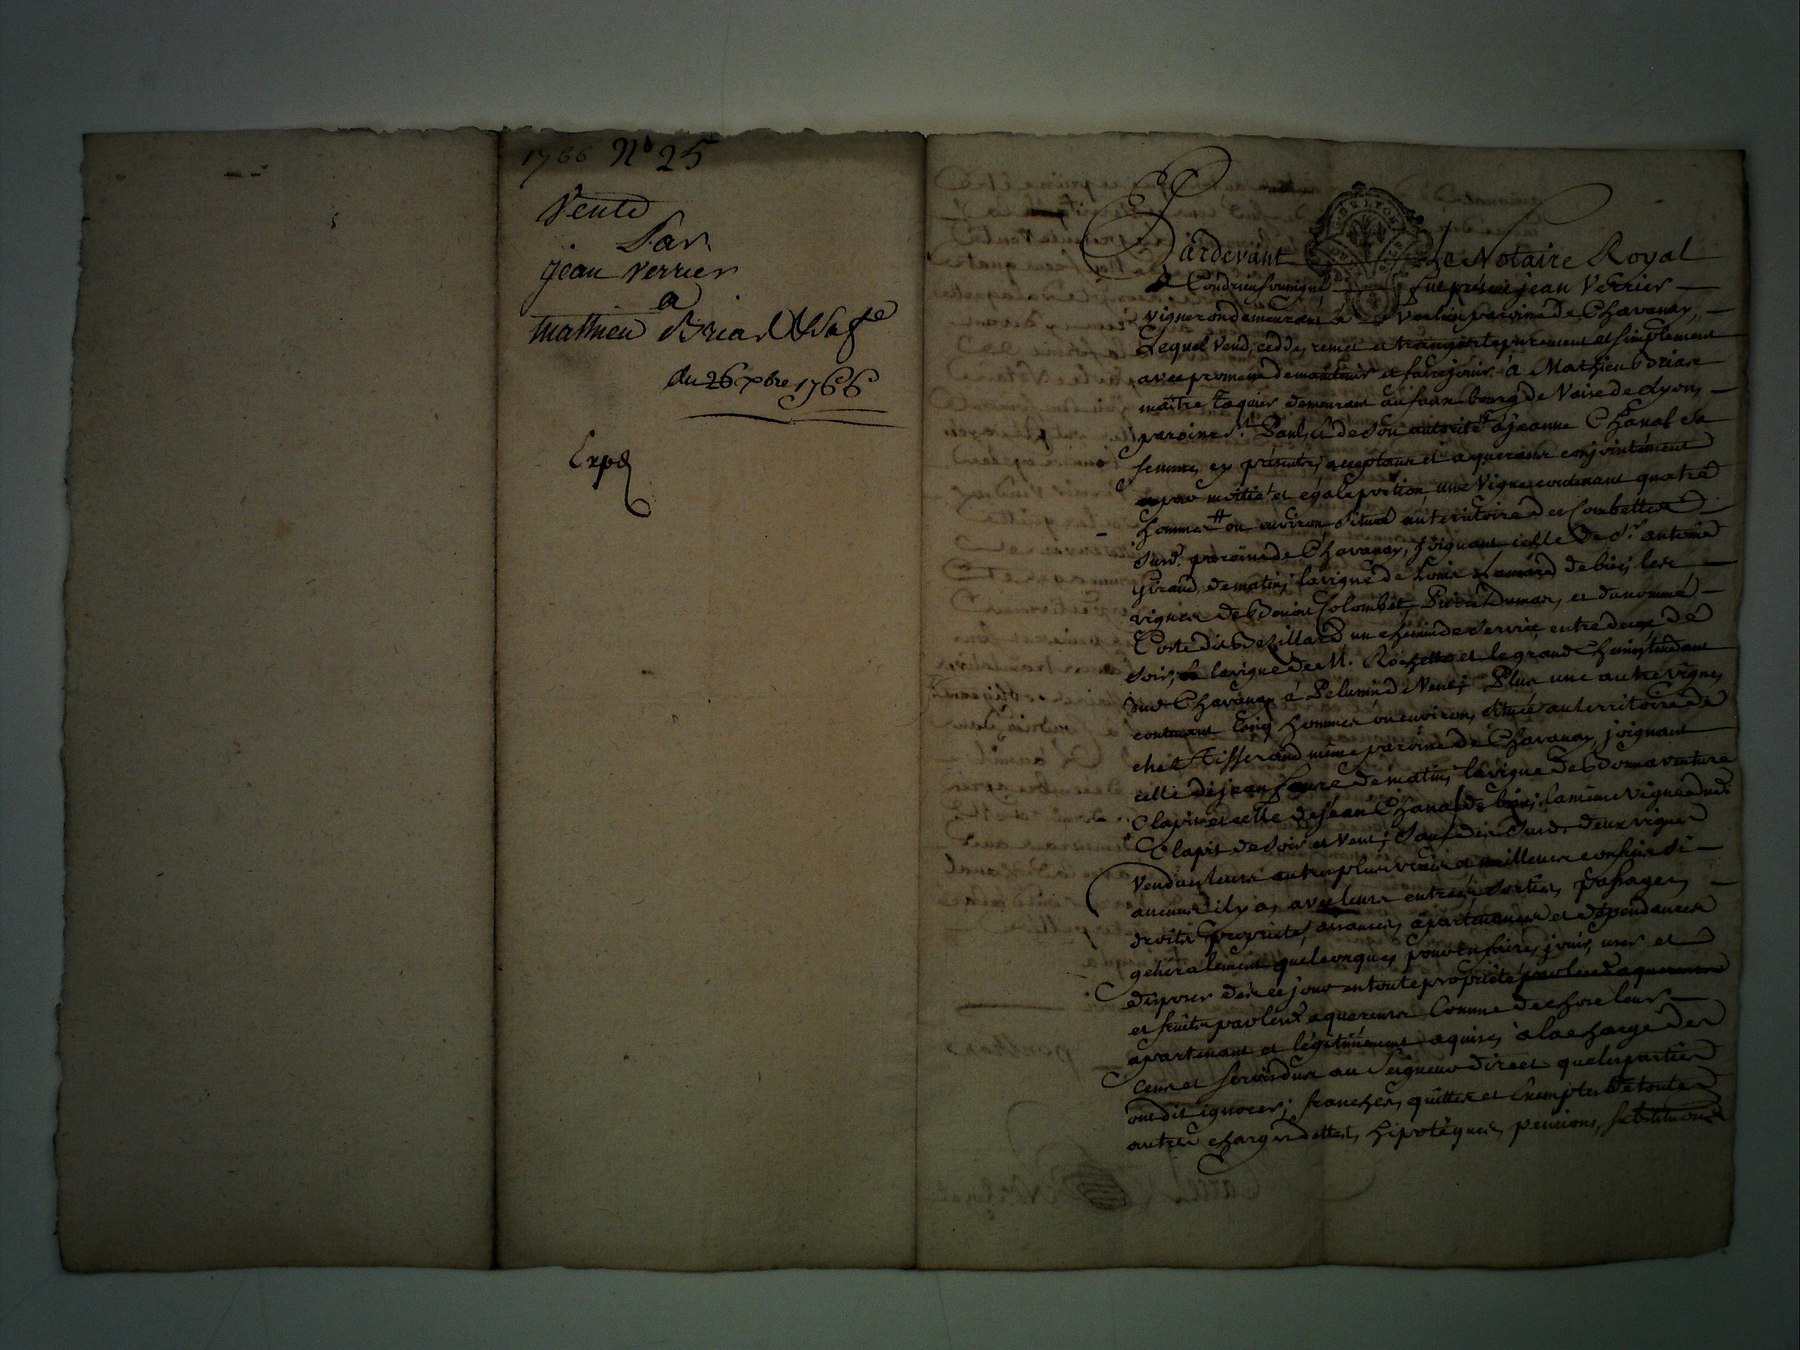 1766 No 25
Vente
Par
jean Verrier
a
Mathieu Briad & Sa fe
du 26 xbre 1766
Expé
DE LYON
Pardevant Le Notaire Royal
a Condrieu soussigné fut présent jean Verrier
vigneron demeurant à Verlieu paroisse de Chavanay,
Lequel vend, cedde, remet et transporte purement et simplement
avec promesse de maintenir et faire jouir à Mathieu Briar
maître demeurant au fauxbourg de Vaise de Lyon,
paroisse St. Paul, & de Son autorité à jeanne Chanal Sa
femme, cy présents, acceptants et aquereurs conjointement
par moitié et égale portion, une Vigne contenant quatre
hommes ou environ Situé au territoire des Combettes
Susd. paroisse de Chavanay, joignant celle de Sr. antoine
Giraud, de matin; la vigne de Louis de bise; les
vignes de Colombet, Pierre Dumas, et du nommé
Coste dit un chemin de Service entre deux de
Soir, la vigne de M. Rochette et le grand Chemin tendant
dud. Chavanay à Pelussin de Vent; Plus une autre vigne,
contenant Cinq hommes ou environ, située au territoire de
chez Tisserand même paroisse de Chavanay, joignant
celle de jean Faure de matin, la vigne de Bonnaventure
Clapit et celle de jean Chanal de bise; la même vigne dud.
Clapit de Soir et Vent; Sauf des Susd. deux vignes
Vendues leurs autres plus vrais et meilleurs confins Si
aucuns il y a, avec leurs entrées, Sorties, passages,
droits, propriétés, aisances, apartenances et dépendances
généralement quelconques, pour en faire, jouir, user et
disposer dès ce jour en toute propriété par les aquereurs
et fruits par lesd. aquereurs Comme de chose leur
apartenant et légitimement aquise, à la charge des
Cens et Servis dus au Seigneur direct que les parties
ont dit ignorer; franches, quittes et Exemptes de toutes
autres charges, dettes, hipotèques, pensions, substitutions